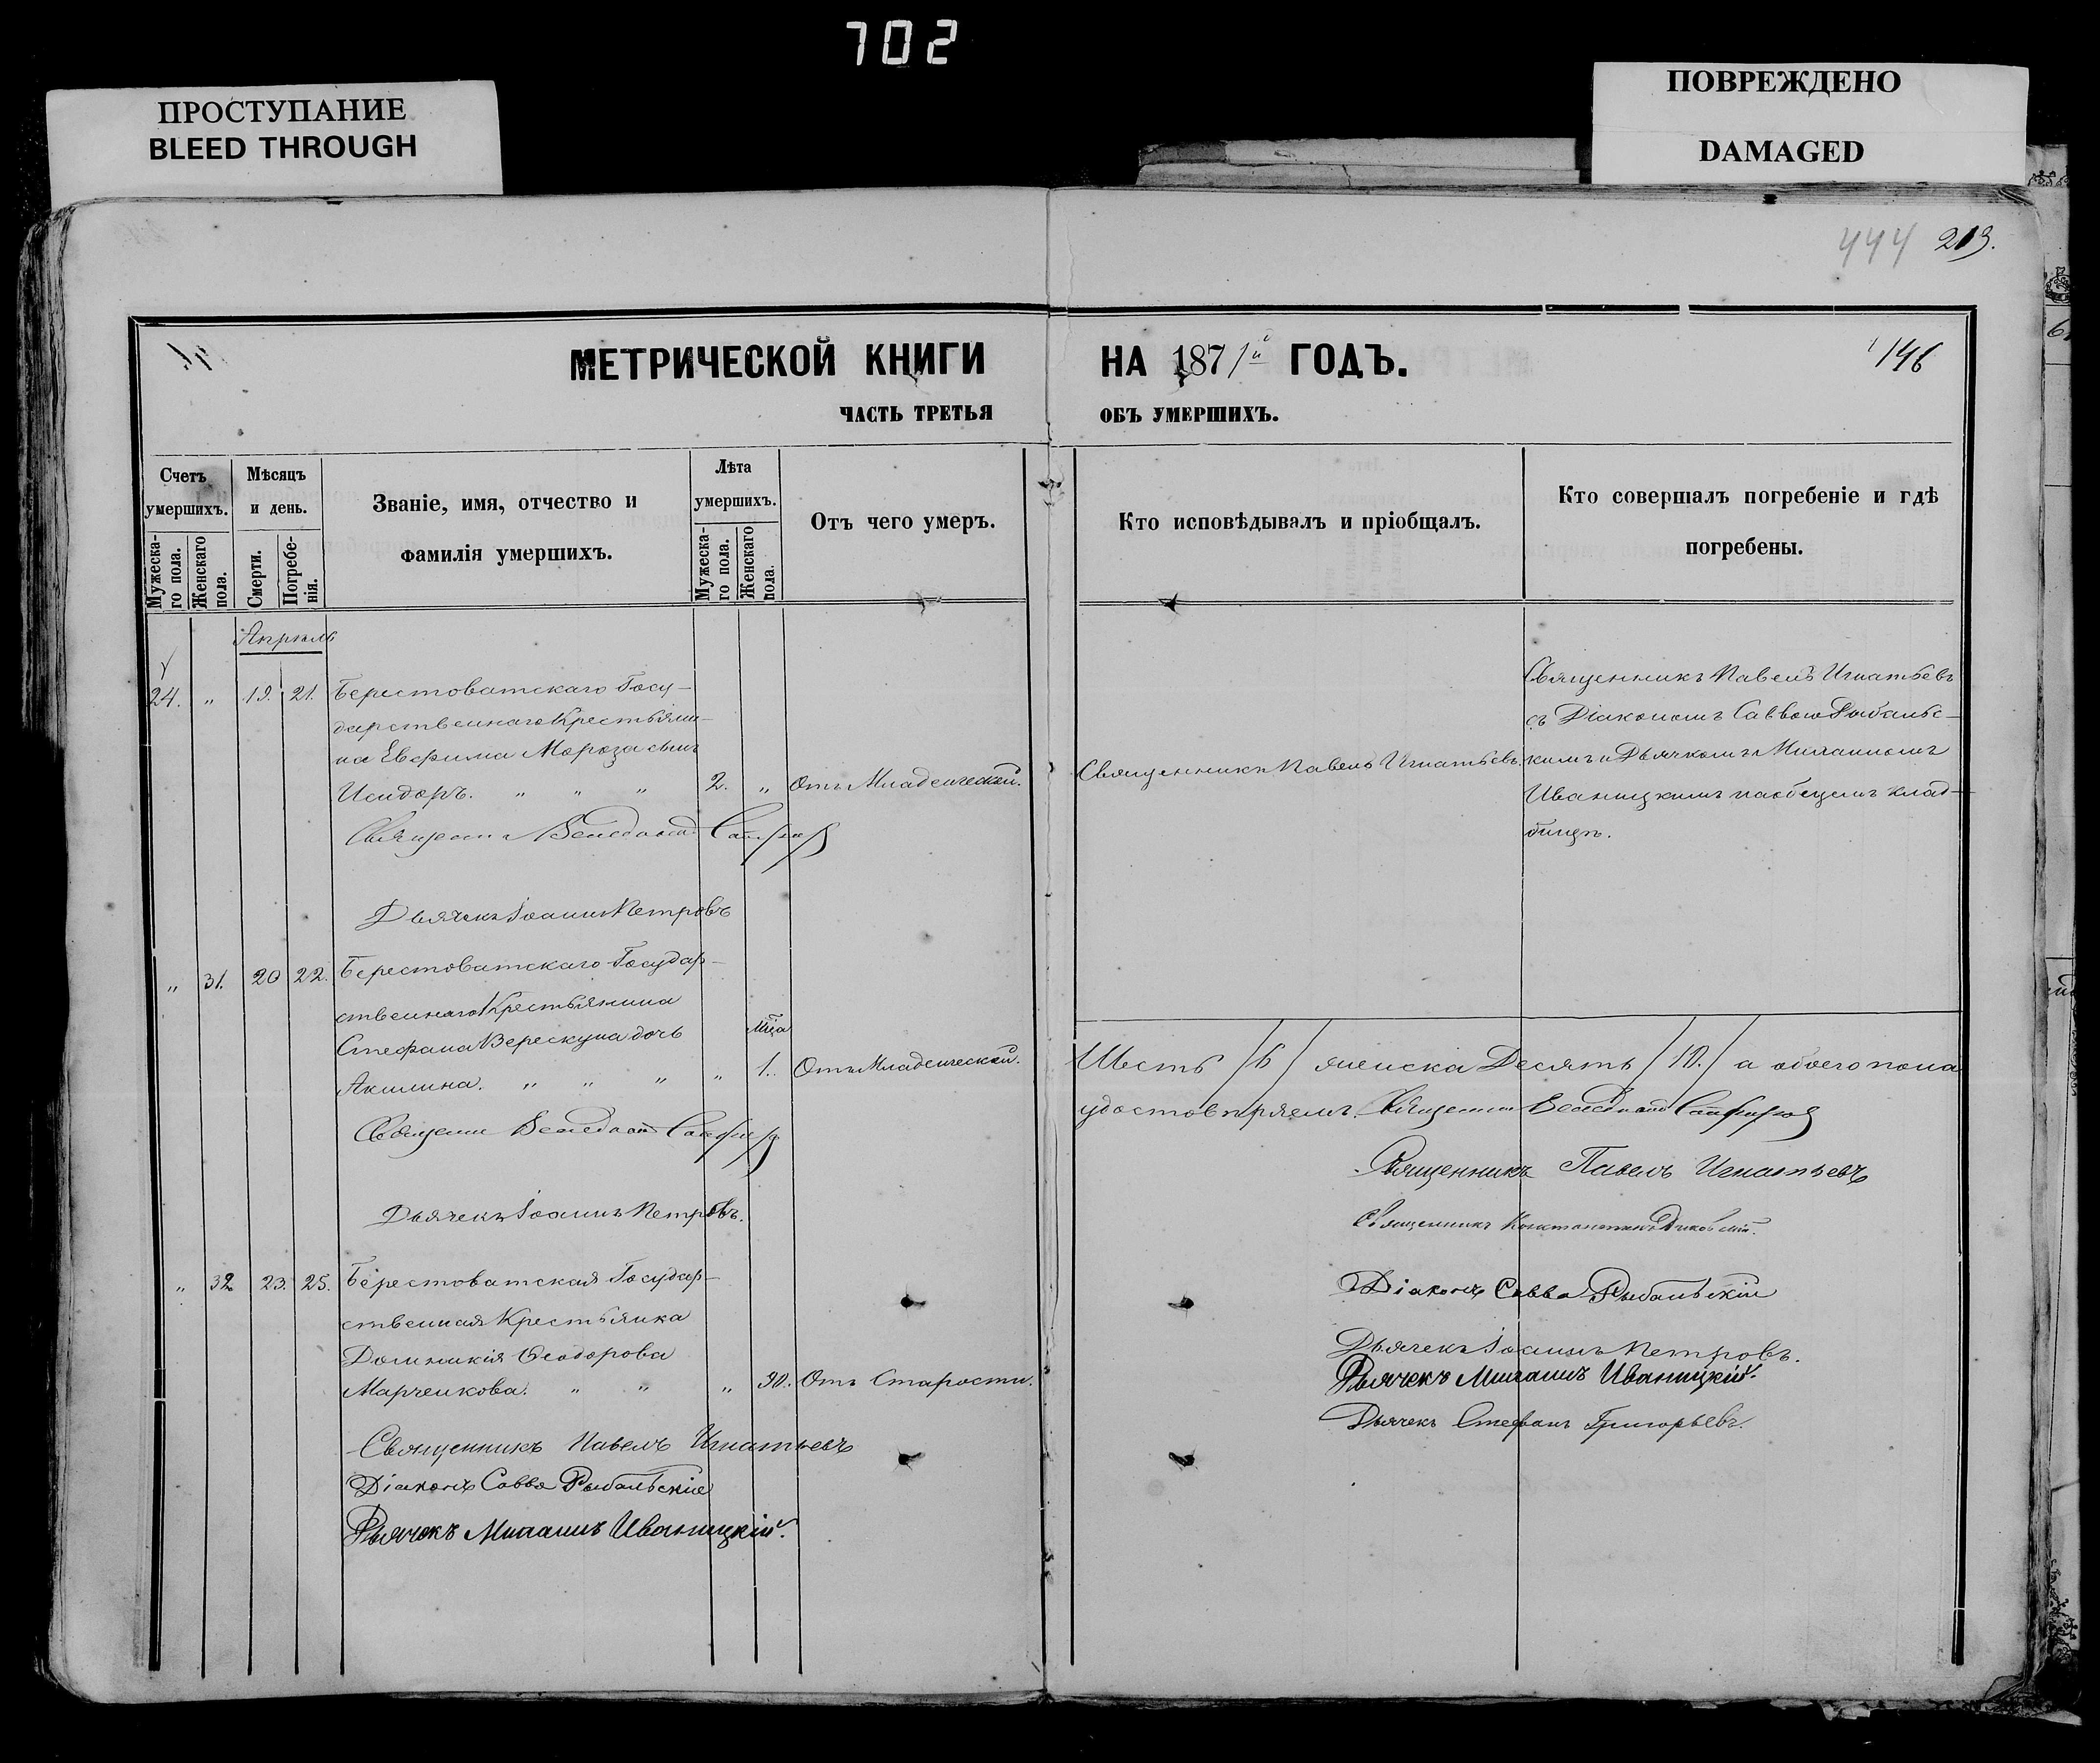 702
ПРОСТУПАНИЕ
BLEED THROUGH
ПОВРЕЖДЕНО
DAMAGED
444 213.
МЕТРИЧЕСКОЙ КНИГИ НА 1871й ГОДЪ.
146
ЧАСТЬ ТРЕТЬЯ ОБЪ УМЕРШИХЪ.
Счетъ умершихъ.
Мужеска-го пола.
Женскаго пола.
Мѣсяцъ и день.
Смерти.
Погребе-нія.
Званіе, имя, отчество и
фамилія умершихъ.
Лѣта умершихъ.
Мужеска-го пола.
Женскаго пола.
Отъ чего умеръ.
Кто исповѣдывалъ и пріобщалъ.
Кто совершалъ погребеніе и гдѣ
погребены.
Апрѣль
24. " 19. 21. Берестоватскаго Госу-
дарственнаго Крестьяни-
на Евфима Мороза сынъ
Исидоръ. " " " 2. " Отъ Младенческой.
Священникъ Павелъ Игнатьевъ
Священникъ Павелъ Игнатьевъ
съ Діакономъ Саввою Рыбальс-
кимъ и Дьячкомъ Михаиломъ
Иваницкимъ на общемъ клад-
бищѣ.
Дьячекъ Іоаннъ Петровъ
" 31. 20 22. Берестоватскаго Государ-
ственнаго Крестьянина
Стефана Верескуна дочь
Акилина. " " " " мца 1. Отъ Младенческой.
Дьячекъ Іоаннъ Петровъ.
" 32 23. 25. Берестоватская Государ-
ственная Крестьянка
Домникія Ѳеодорова
Марченкова. " " " 90. Отъ Старости.
Священникъ Павелъ Игнатьевъ
Діаконъ Савва Рыбальскій
Дьячекъ Михаилъ Иваницкій.
Шесть /6/ женска Десять /10./ а обоего пола
удостовѣряемъ.
Священникъ Павелъ Игнатьевъ
Священникъ Константинъ
Діаконъ Савва Рыбальскій
Дьячекъ Іоаннъ Петровъ.
Дьячекъ Михаилъ Иваницкій.
Дьячекъ Стефанъ Григорьевъ.